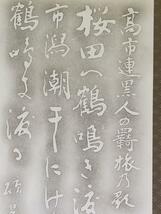 高市連黒人の羇旅乃歌
桜田へ鶴鳴き渡
市潟潮干にけ
鶴鳴き渡る